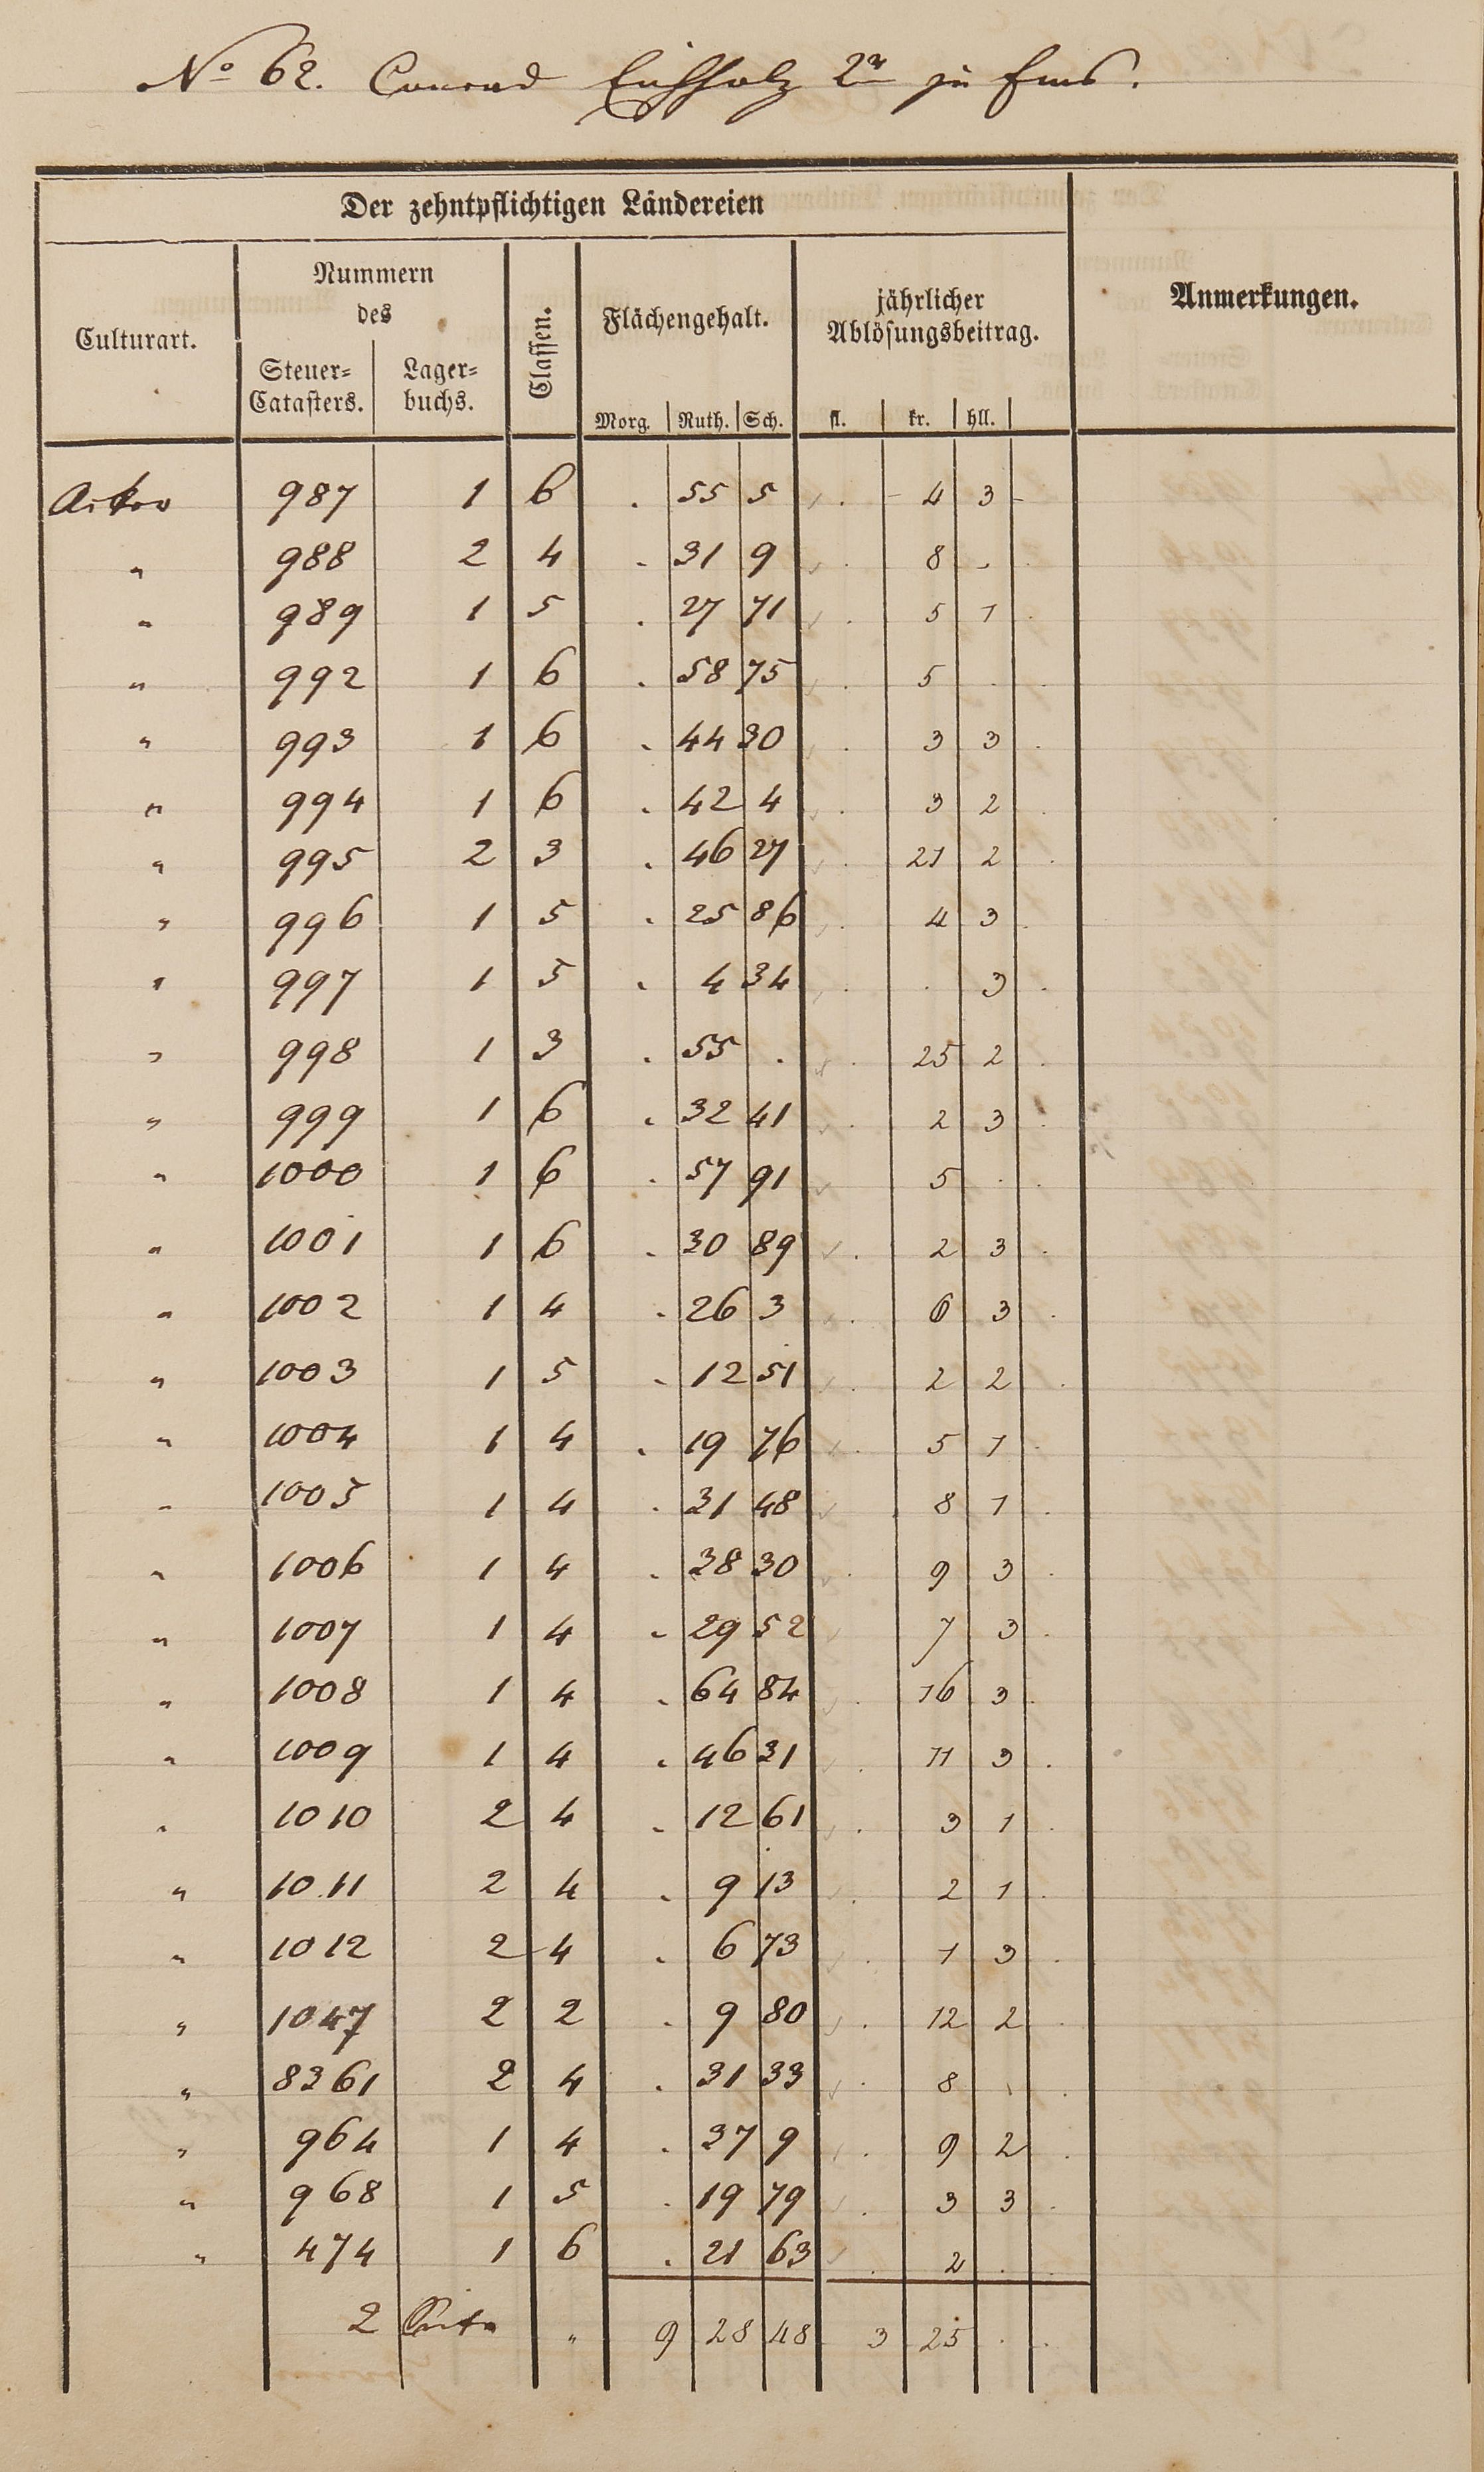 No 62. Conrad Eichholz 2r zu Ems.
Der zehntpflichtigen Ländereien
Anmerkungen.
Culturart.
Nummern
des
Steuer=
Catasters.
Lager=
buchs.
Classen.
Flächengehalt.
Morg. Ruth. Sch.
jährlicher
Ablösungsbeitrag.
fl. kr. hll.
Acker 987 1 6 . 55 5 . 4 3
" 988 2 4 . 31 9 . 8 .
" 989 1 5 . 27 71 . 5 1
" 992 1 6 . 58 75 . 5 .
" 993 1 6 . 44 30 . 3 3
" 994 1 6 . 42 4 . 3 2
" 995 2 3 . 46 27 . 21 2
" 996 1 5 . 25 86 . 4 3
" 997 1 5 . 4 34 . . 3
" 998 1 3 . 55 . . 25 2
" 999 1 6 . 32 41 . 2 3
" 1000 1 6 . 57 91 . 5 .
" 1001 1 6 . 30 89 . 2 3
" 1002 1 4 . 26 3 . 6 3
" 1003 1 5 . 12 51 . 2 2
" 1004 1 4 . 19 76 . 5 1
" 1005 1 4 . 31 48 . 8 1
" 1006 1 4 . 38 30 . 9 3
" 1007 1 4 . 29 52 . 7 3
" 1008 1 4 . 64 84 . 16 3
" 1009 1 4 . 46 31 . 11 3
" 1010 2 4 . 12 61 . 3 1
" 1011 2 4 . 9 13 . 2 1
" 1012 2 4 . 6 73 . 1 3
" 1047 2 2 . 9 80 . 12 2
" 8361 2 4 . 31 33 . 8 .
" 964 1 4 . 37 9 . 9 2
" 968 1 5 . 19 79 . 3 3
" 474 1 6 . 21 63 . 2 .
2 Seite " 9 28 48 3 25 .